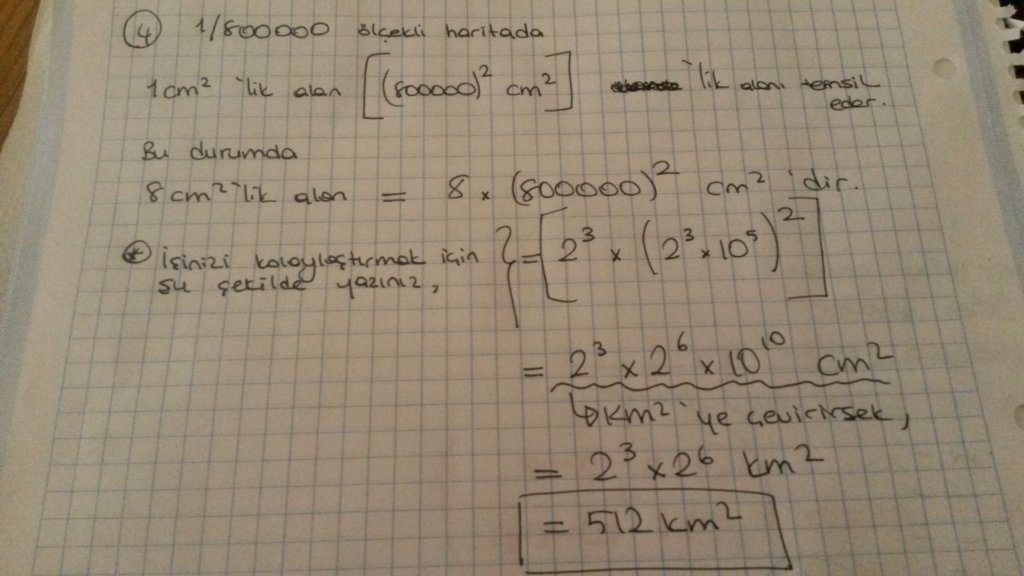 4 1/800000 ölçekli haritada
1cm² 'lik alan [(800000)² cm²] 'lik alanı temsil
eder.
Bu durumda
8cm²'lik alan = 8 x (800000)² cm² 'dir.
* işinizi kolaylaştırmak için } = [2³ x (2³ x 10⁵)²]
şu şekilde yazınız,
= 2³ x 2⁶ x 10¹⁰ cm²
↳ km² 'ye çevirirsek,
= 2³ x 2⁶ km²
= 512 km²